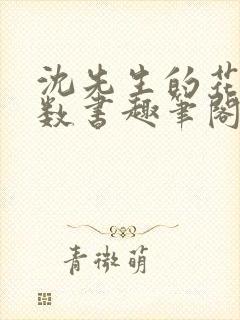 沈先生的花
数书趣笔阁
青微萌